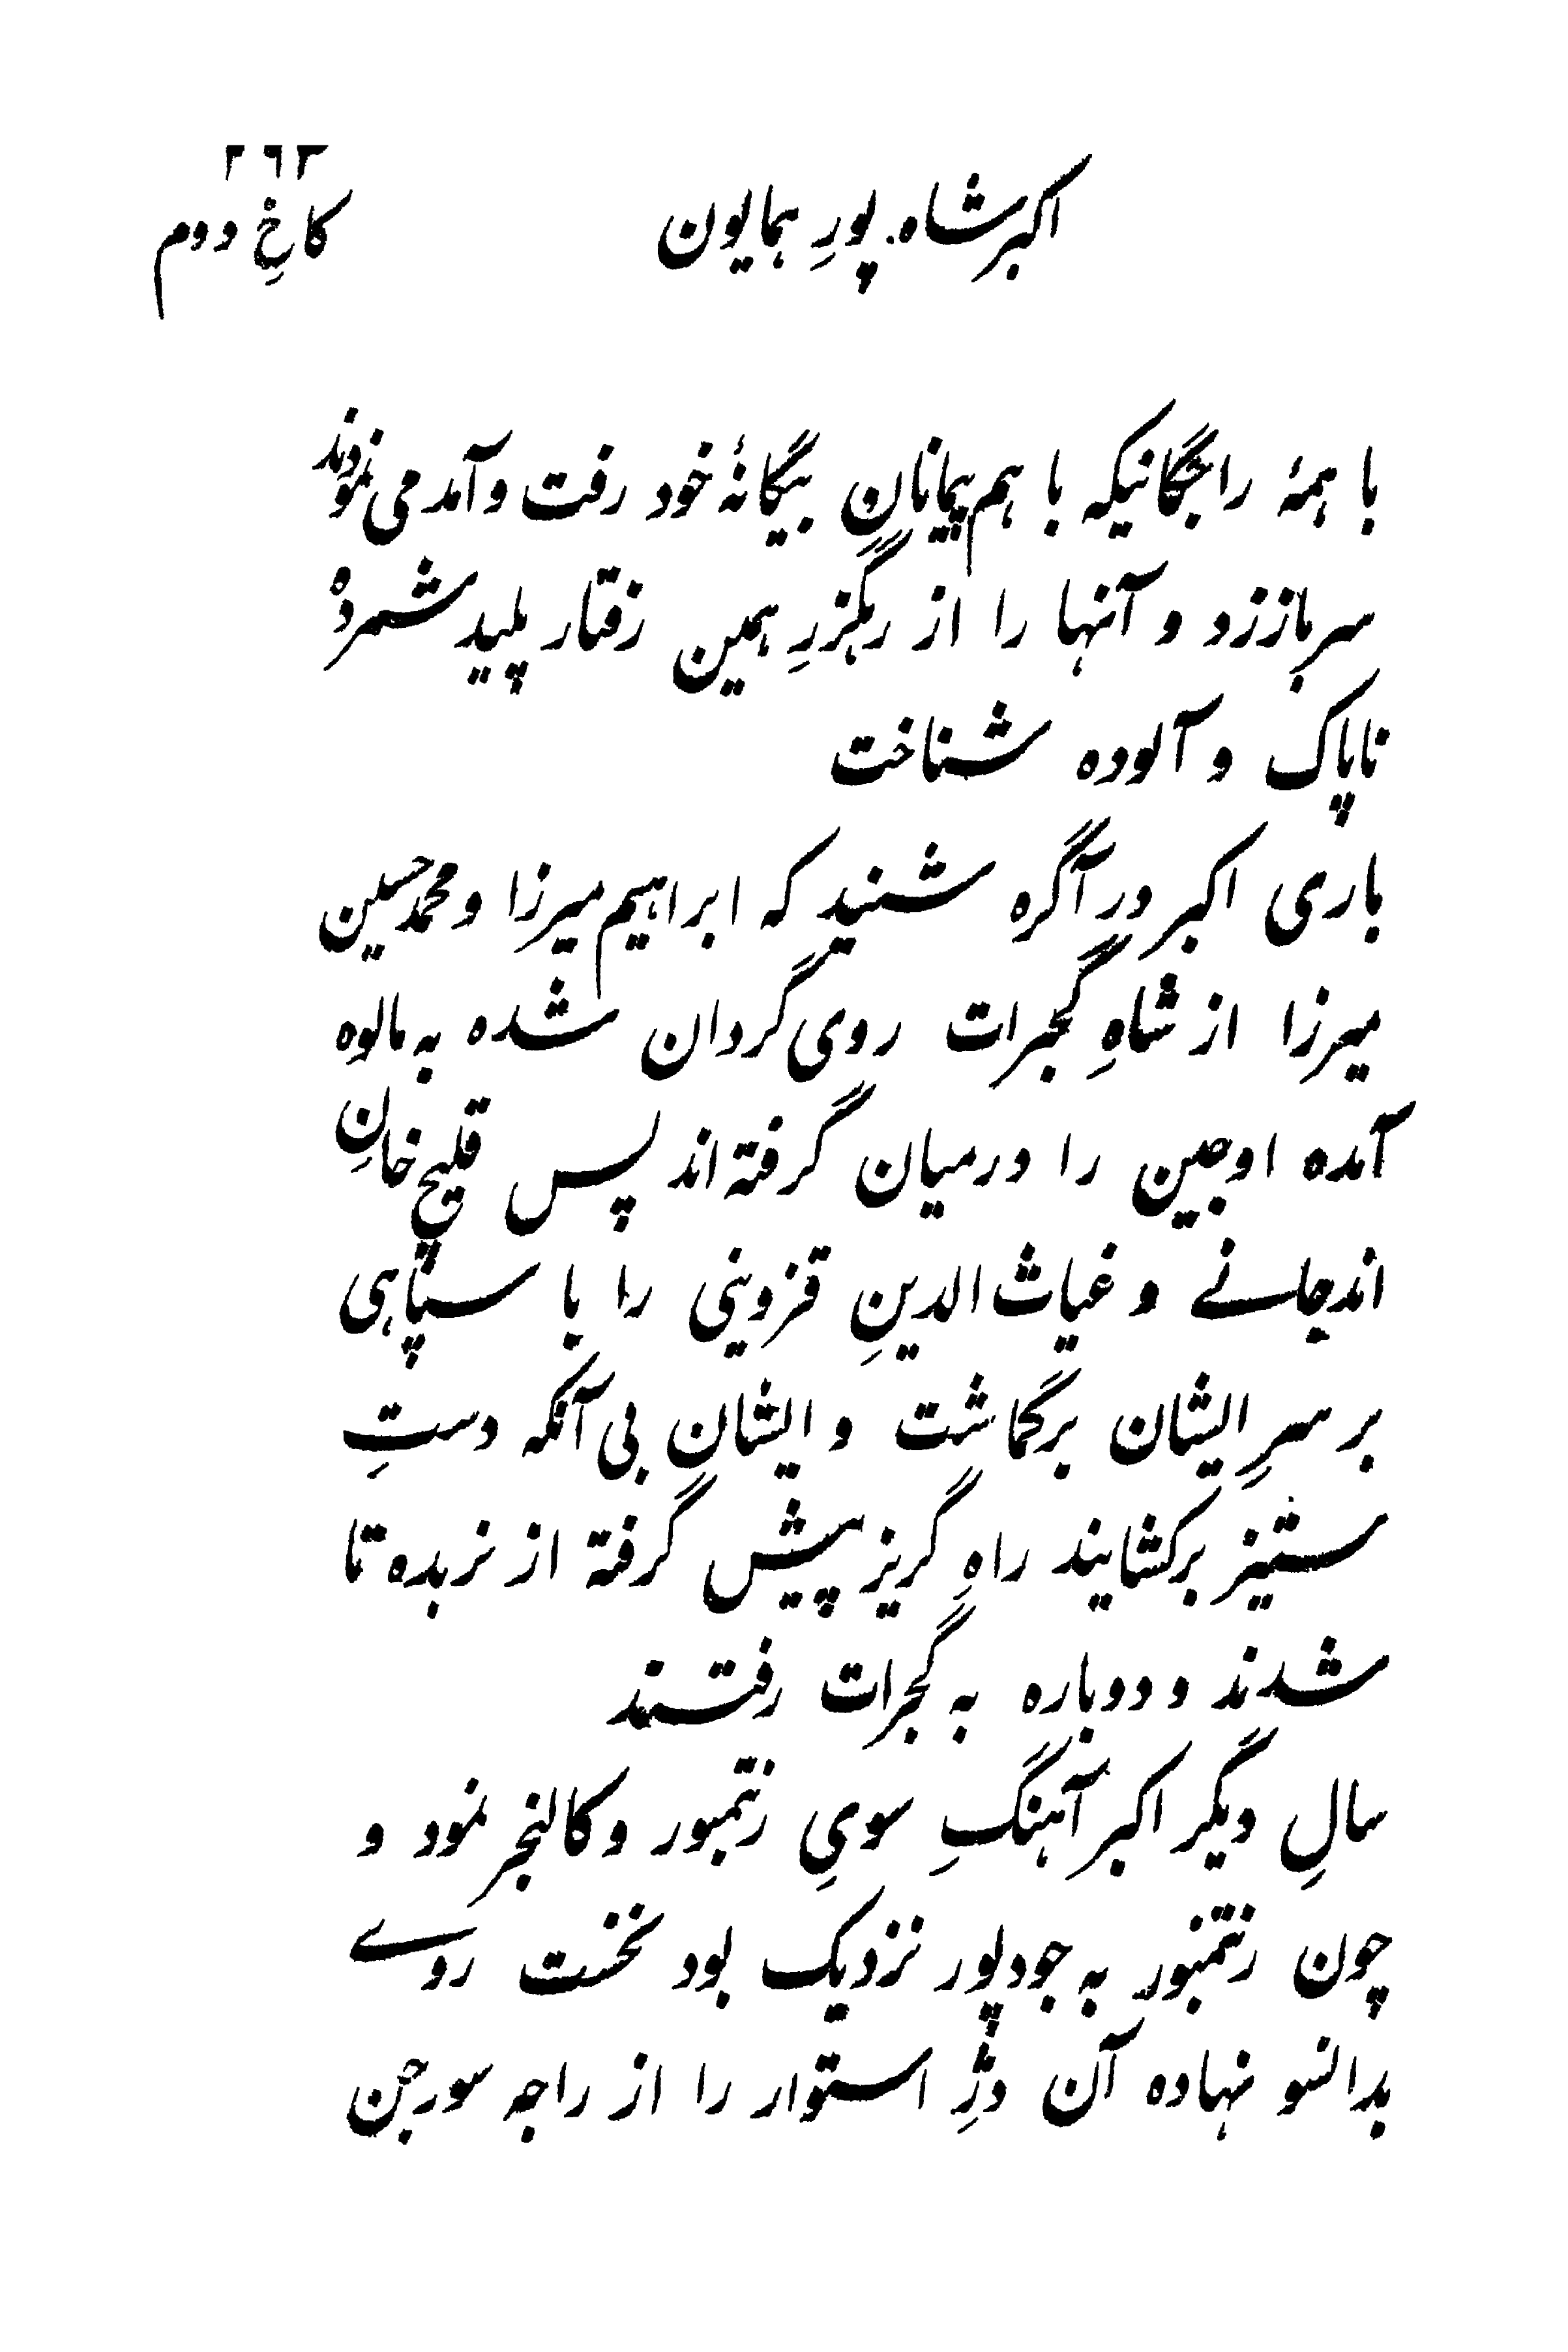 ۲۶۲
اکبر شاه پورِ همایون
کاخِ دوم
با همهٔ راجگانیکه با هم پیمانانِ بیگانهٔ خود رفت و آمد می نمودند
سر باز زد و آنها را از رهگزرِ همین رفتار پلید شمرده
ناپاک و آلوده شناخت
باری اکبر در آگره شنید که ابراهیم میرزا و محمد حسین
میرزا از شاهِ گجرات روی گردان شده به مالوه
آمده اوجین را درمیان گرفته اند پس قلیچ خانِ
اندجانے و غیاث الدینِ قزوینی را با سپاهی
بر سرِ ایشان برگماشت و ایشان بی آنکه دستِ
ستیز برکشایند راهِ گریز پیش گرفته از نربده تا
شدند و دوباره به گجرات رفتند
سالِ دیگر اکبر آهنگِ سویِ رنتمبور و کالنجر نمود و
چون رنتمنبور به جودپور نزدیک بود نخست روے
بدانسو نهاده آن دژِ استوار را از راجه سورجن